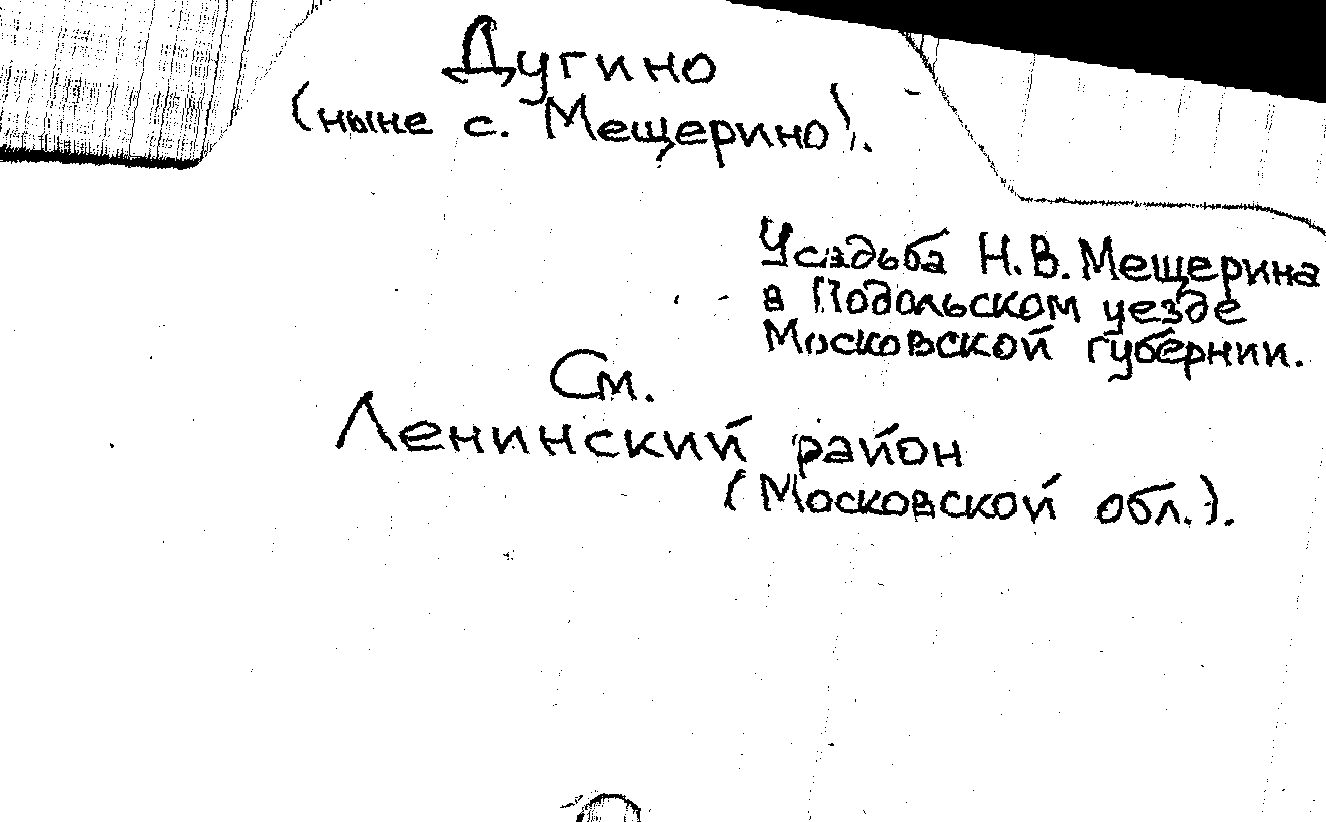 Дугино
(ныне с. Мещерино).
Усадьба Н.В. Мещерина
в Подольском уезде
Московской губернии.
См.
Ленинский район
(Московской обл.).